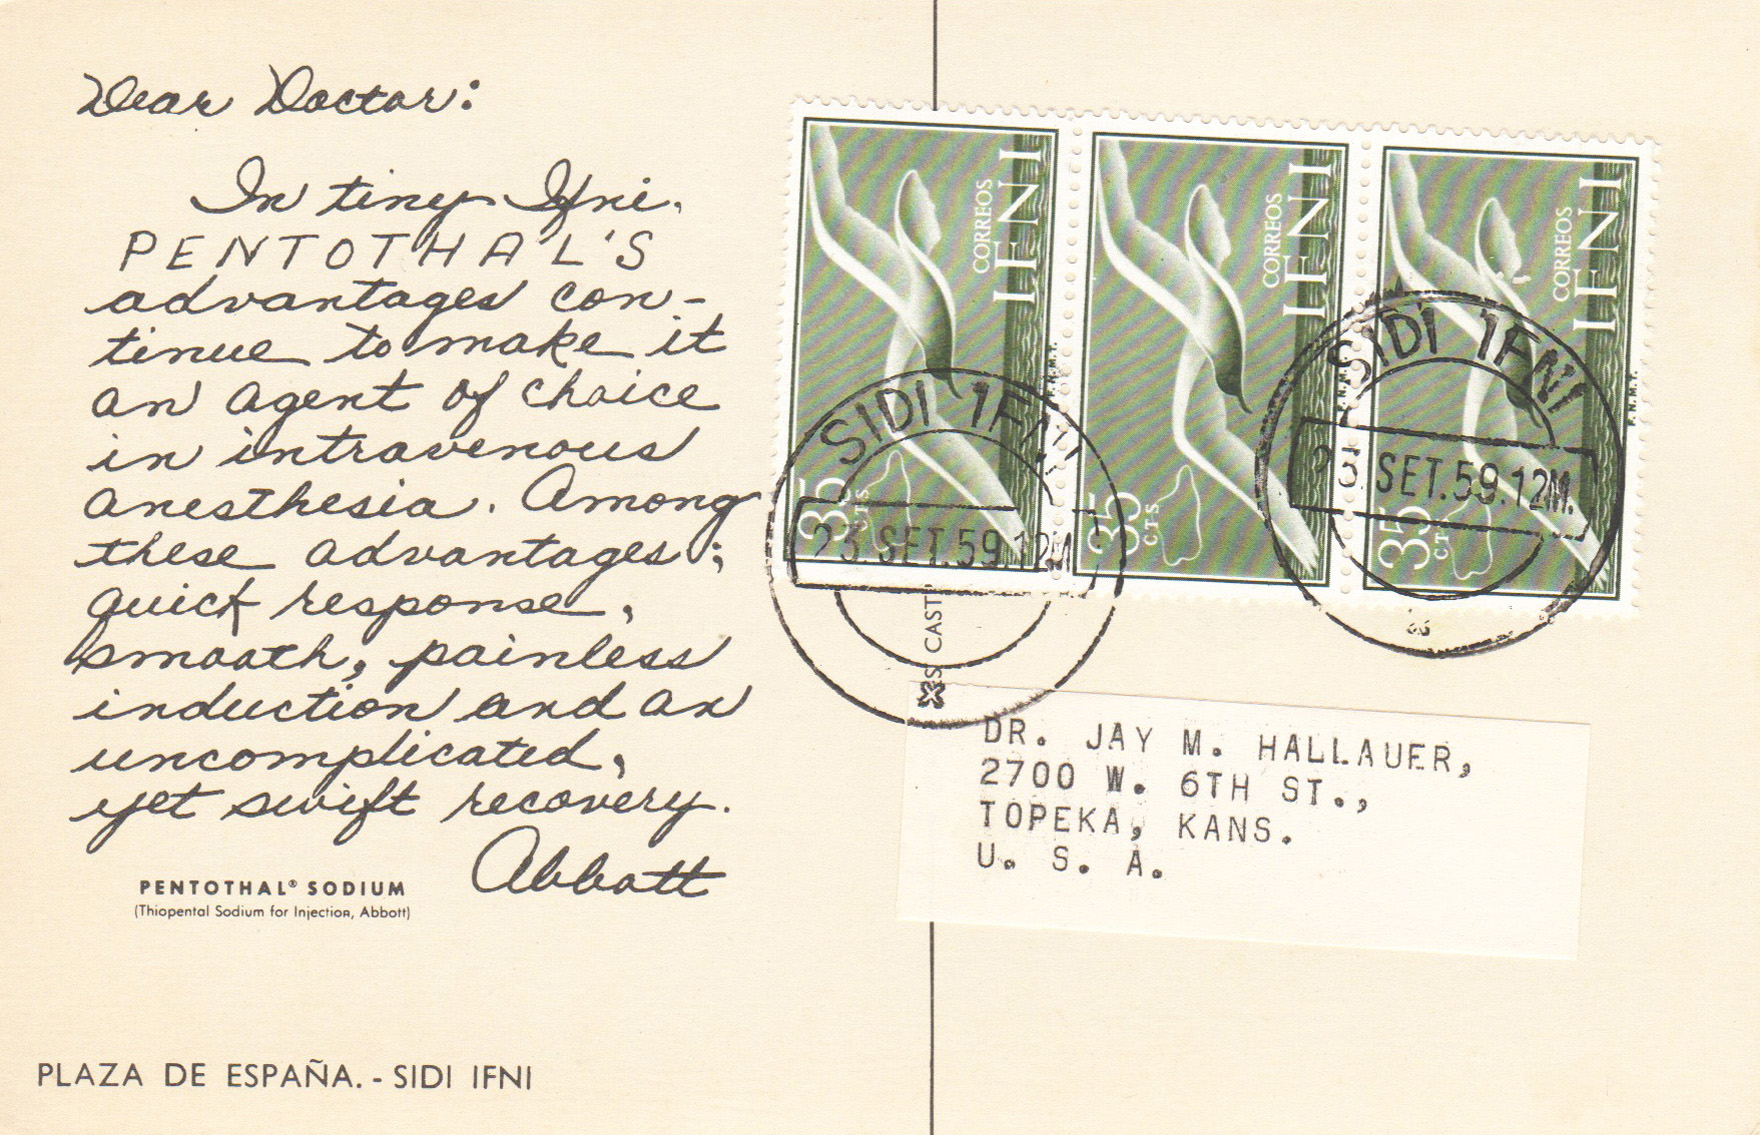 Dear Doctor:
In tiny Ifni,
PENTOTHAL'S
advantages con-
tinue to make it
an agent of choice
in intravenous
anesthesia. Among
these advantages:
quick response,
smooth, painless
induction and an
uncomplicated,
yet swift recovery.
Abbott
PENTOTHAL® SODIUM
(Thiopental Sodium for Injection, Abbott)
PLAZA DE ESPAÑA. - SIDI IFNI
CORREOS
IFNI
35
CTS.
F.N.M.T.
CORREOS
IFNI
35
CTS.
F.N.M.T.
CORREOS
IFNI
35
CTS.
F.N.M.T.
SIDI IFNI
23 SET.59.12M.
SIDI IFNI
23 SET.59.12M.
DR. JAY M. HALLAUER,
2700 W. 6TH ST.,
TOPEKA, KANS.
U. S. A.